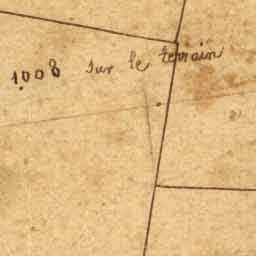 1008 sur le terrain